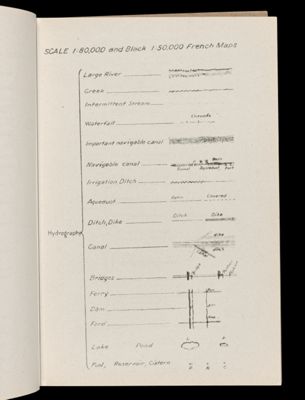 SCALE 1:80,000 and Black 1:50,000 French Maps
Large River
Creek
Intermittent Stream
Cascade
Waterfall
Important navigable canal
Navigable canal
Aqueduct
Irrigation, Ditch
Covered
Aqueduct
Ditch Dike
Ditch, Dike
Hydrography
Dike
Canal
Bridges
Ferry
Dam
Ford
Lake Pond
Pool, Reservoir, Cistern